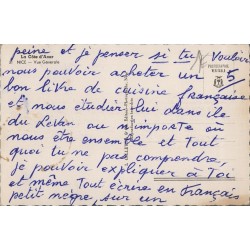 La Côte d'Azur
NICE - Vue Générale
peine et je penser si tu Vouloir
nous pouvoir acheter un 5
bon livre de cuisine française
et nous étudier lui dans île
du Levan ou n'importe où
nous être ensemble et Tout
quoi tu ne pas comprendre,
je pouvoir expliquer à Toi
et même Tout écrire en français
petit nègre, sur un